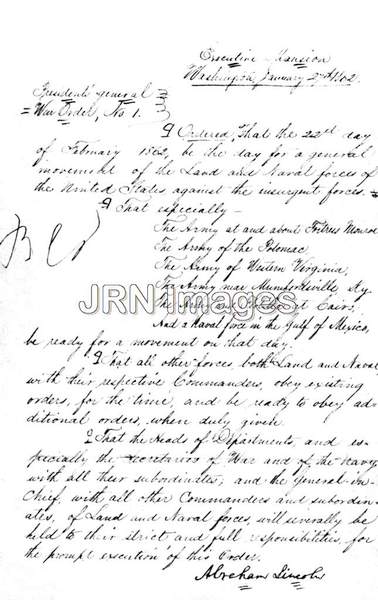 Executive Mansion
Washington, January 27th 1862.
President's general
War Order, No 1.
Ordered, That the 22nd day
of February 1862, be the day for a general
movement of the Land and Naval forces of
the United States against the insurgent forces.
That especially—
The Army at and about Fortress Monroe
The Army of the Potomac
The Army of Western Virginia,
The Army near Munfordsville, Ky
The Army and at Cairo,
And a Naval force in the Gulf of Mexico,
JRN Images
be ready for a movement on that day.
That all other forces, both Land and Naval
with their respective Commanders, obey existing
orders, for the time, and be ready to obey ad-
ditional orders, when duly given.
That the Heads of Departments, and es-
pecially the Secretaries of War and of the Navy,
with all their subordinates; and the General-in-
Chief, with all other Commanders and subordin-
ates, of Land and Naval forces, will severally be
held to their strict and full responsibilities, for
the prompt execution of this Order.
Abraham Lincoln